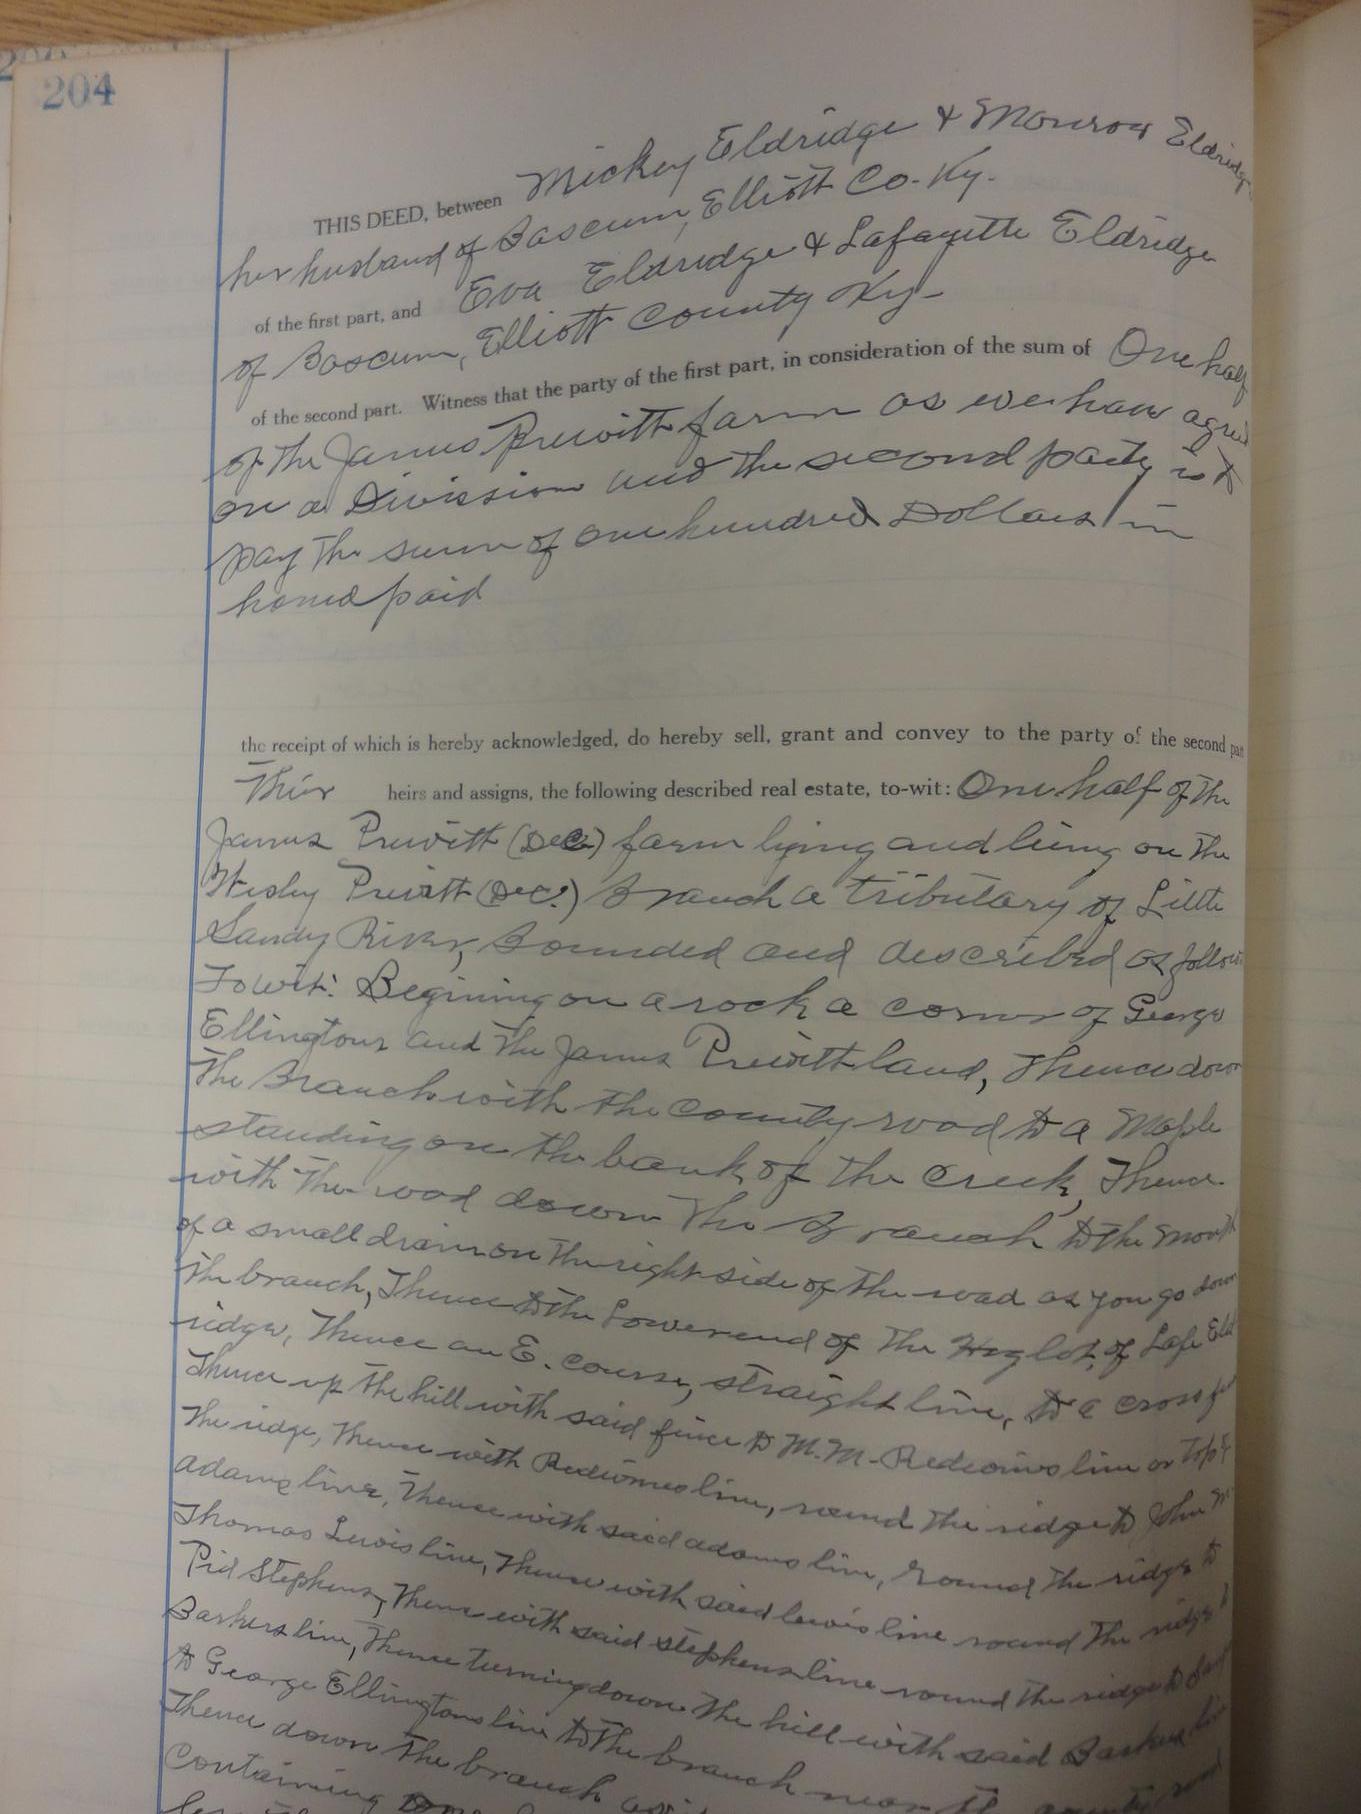 204
THIS DEED, between Mickey Eldridge & Monroe Eldridge
her husband of Bascum, Elliott Co. Ky.
of the first part, and Eva Eldridge & Lafayette Eldridge
of Bascum, Elliott County Ky-
of the second part. Witness that the party of the first part, in consideration of the sum of One half
of the James Prewitt farm as we have agreed
on a Division and the second party is to
pay the sum of one hundred Dollars in
hand paid
the receipt of which is hereby acknowledged, do hereby sell, grant and convey to the party of the second part
Thier heirs and assigns, the following described real estate, to-wit: One half of the
James Prewitt (Dec.) farm lying and being on the
Wesley Prewitt (Dec.) Branch a tributary of Little
Sandy River, Bounded and described as follows
Towit: Begining on a rock a corner of George
Ellingtons and the James Prewitt land, Thence down
the Branch with the county road to a Maple
standing on the bank of the creek, Thence
with the road down the Branch to the Mouth
of a small drain on the right side of the road as you go down
the branch, Thence to the Lower end of the Hog lot of Lafe Eld
ridge, Thence an E. course, straight line, to a cross
Thence up the hill with said fence to M.M. Redwines line on top of
the ridge, Thence with Redwines line, round the ridge to John
Adams line, Thence with said Adams line, round the ridge to
Thomas Lewis line, Thence with said Lewis line round the ridge to
Pid Stephens, Thence with said Stephens line round the ridge to
Barkers line, Thence turning down the hill with said Barkers line
to George Ellingtons line to the branch near the county road
Thence down the branch
Containing